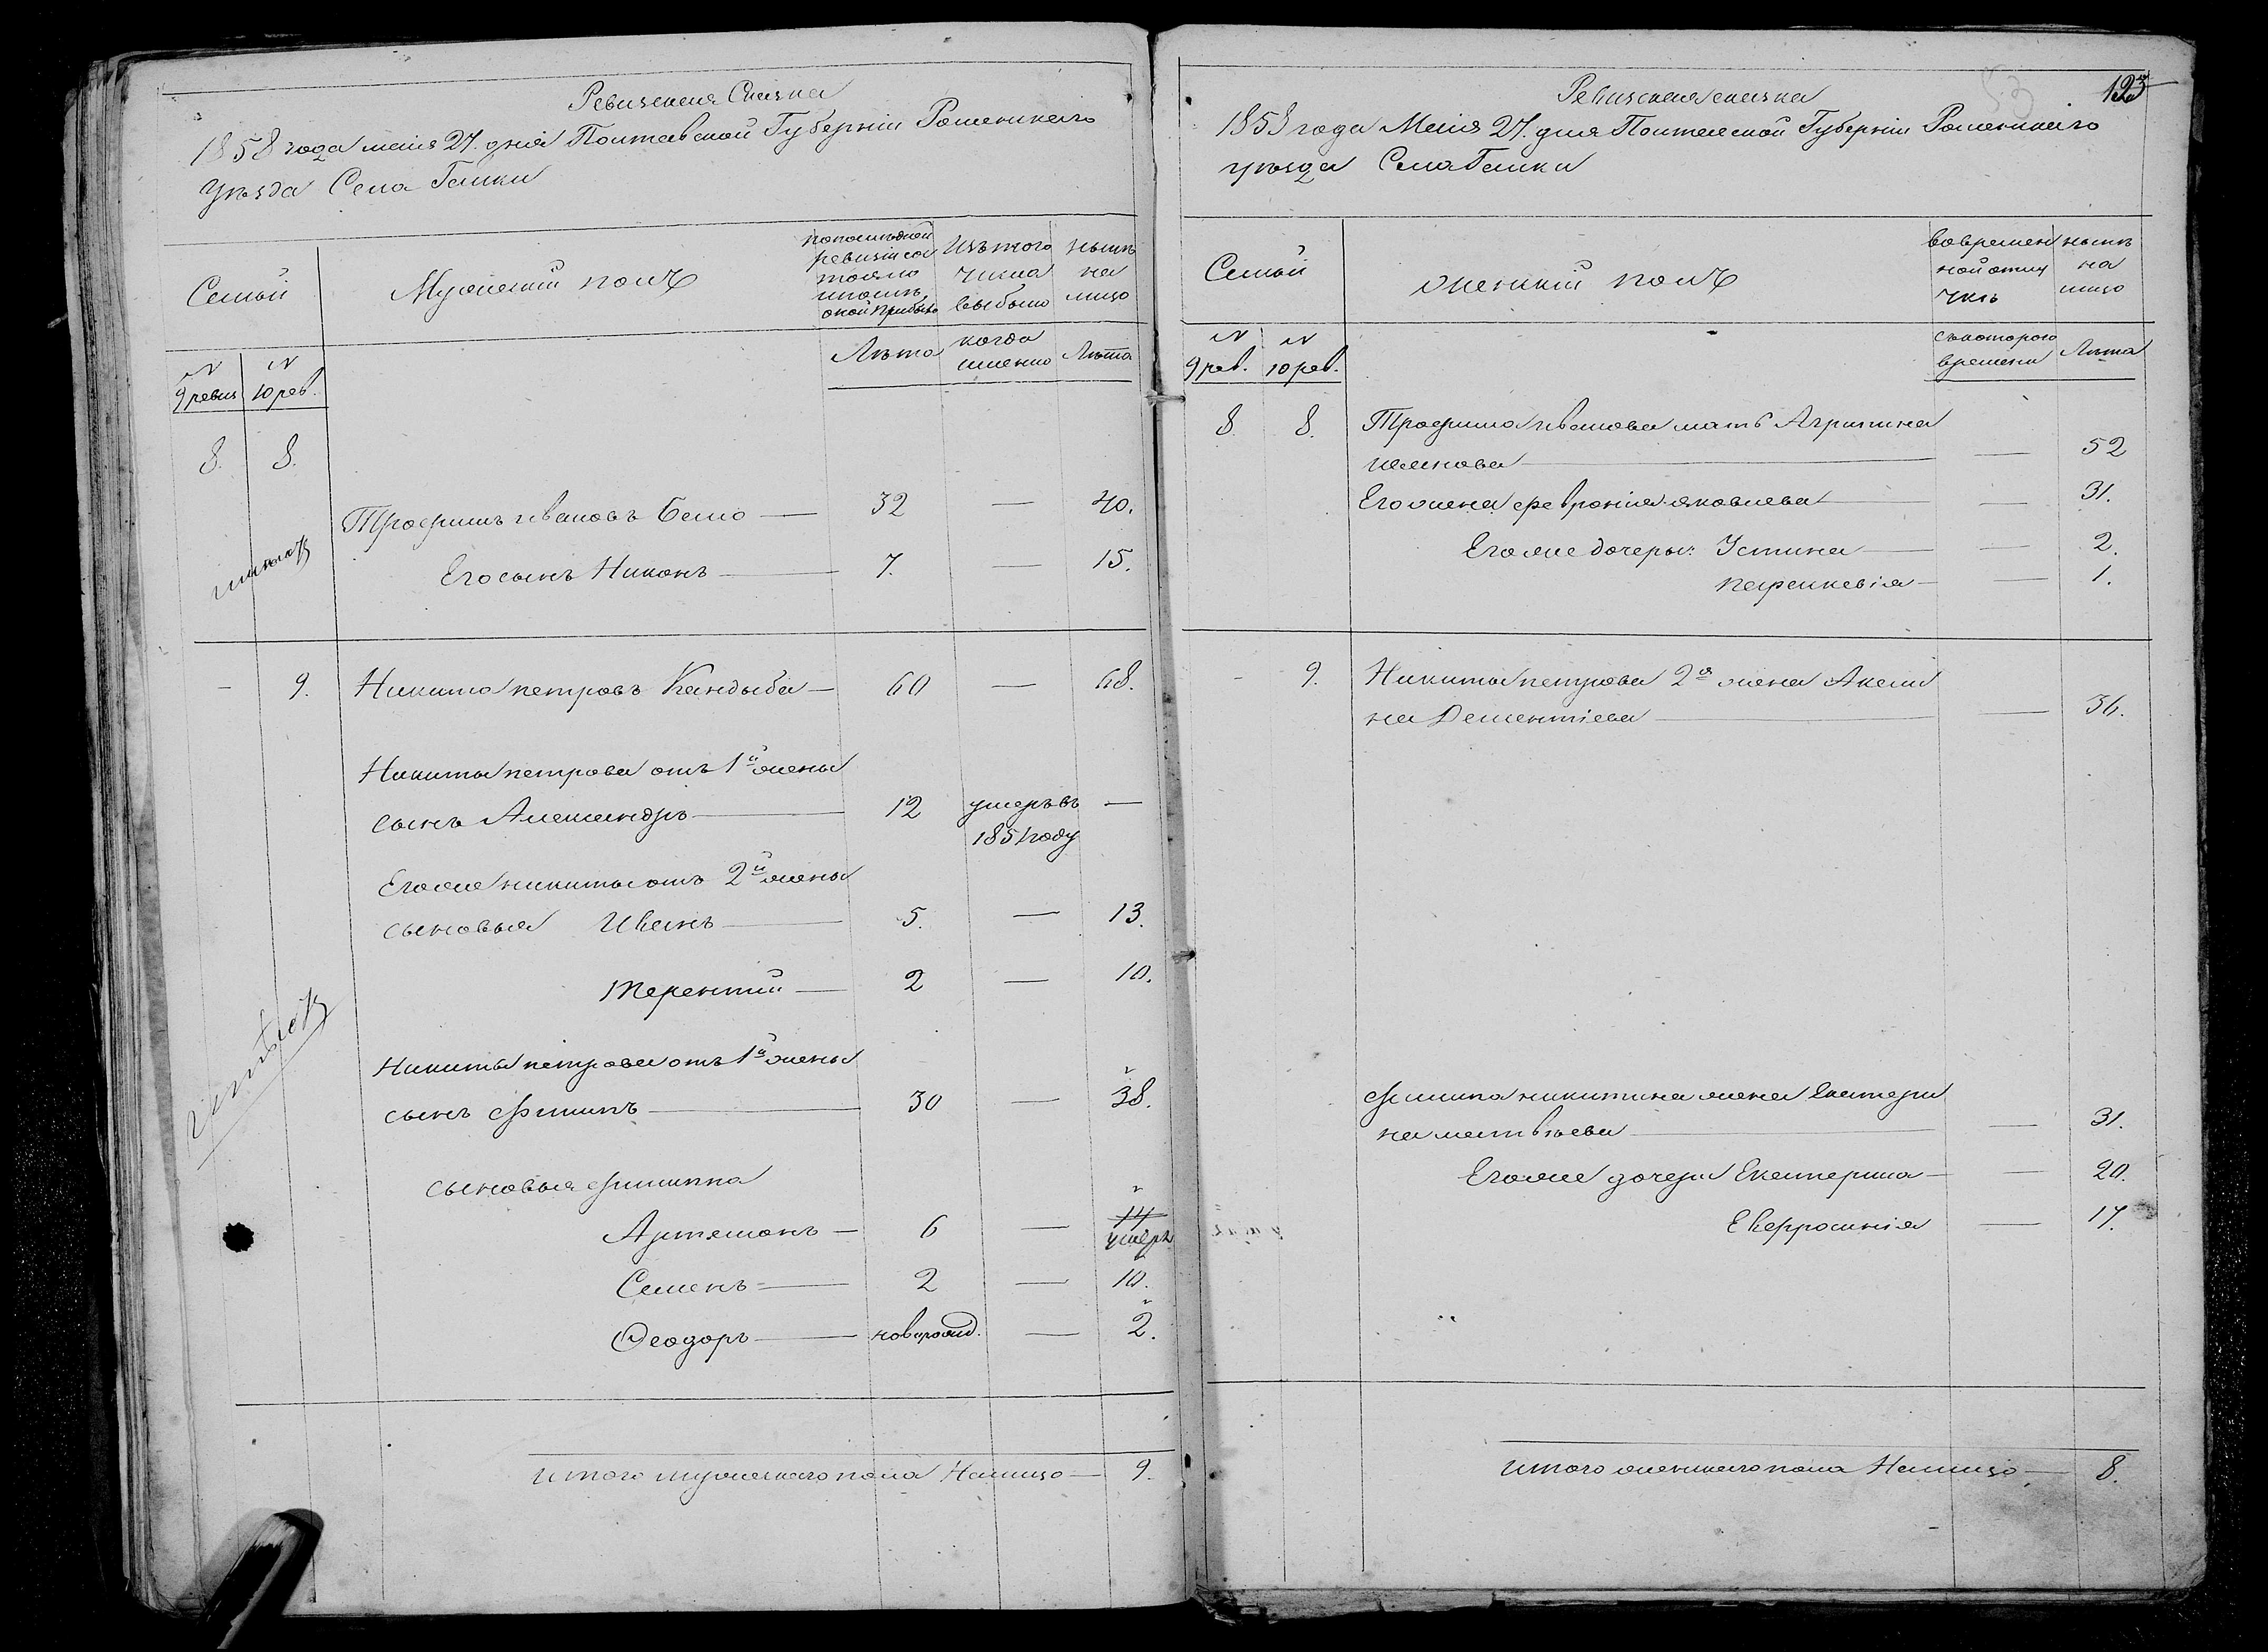 Ревизская Сказка
1858 года маія 27. дня Полтавской Губерніи Роменскаго
Уѣзда Села Галки
Семьи
Мужескій полъ
по послѣдней
ревизіи со
тояло
и послѣ
оной прибыло
Изъ того
числа
выбыло
нынѣ
на
лицо
№
9 ревиз
№
10 рев.
Лѣта
когда
именно
Лѣта
8. 8.
Трофимъ ивановъ Бело — 32 — 40.
Его сынъ Никонъ — 7. — 15.
- 9. Никита петровъ Кандыба — 60 — 68.
Никиты петрова отъ 1й жены
сынъ Александръ — 12 умеръ въ —
1851 году
Его же никиты отъ 2й жены
сыновья Иванъ — 5. — 13.
терентій — 2 — 10.
Никиты петрова отъ 1й жены
сынъ филипъ — 30 — 38.
сыновья филиппа
Артемонъ — 6 — 14
умеръ
Семенъ — 2 — 10.
Ѳеодоръ — новорожд. — 2.
итого мужескаго пола Налицо — 9.
53 123
Ревизская сказка
1858 года Маія 27. дня Полтавской Губерніи Роменскаго
уѣзда Села Галки
Семьи
женскій полъ
во времен
ной отлу
чкѣ
нынѣ
на
лицо
№
9 рев.
№
10 рев.
съ котораго
времени
Лѣта
8. 8. Трофима иванова мать Агрипина
— — 52
Его жена февронія яковлева — — 31.
Его же дочеры: Устина — — 2.
параскевія — — 1.
- 9. Никиты петрова 2я жена Акели
на Дементіева — — 36.
филипа никитина жена Екатери
на матвѣева — — 31.
Его же дочери Екатерина — — 20.
Евфросинія — 17.
итого женскаго пола Налицо — 8.